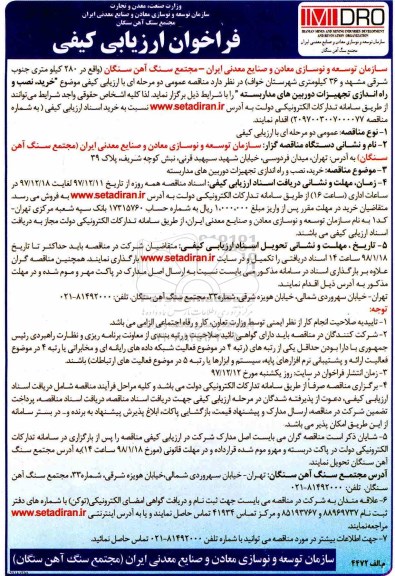 وزارت صنعت، معدن و تجارت
سازمان توسعه و نوسازی معادن و صنایع معدنی ایران
مجتمع سنگ آهن سنگان
IMIDRO
IRANIAN MINES AND MINING INDUSTRIES DEVELOPMENT AND RENOVATION ORGANIZATION
سازمان توسعه و نوسازی معادن و صنایع معدنی ایران
فراخوان ارزیابی کیفی
سازمان توسعه و نوسازی معادن و صنایع معدنی ایران – مجتمع سنگ آهن سنگان (واقع در ۲۸۰ کیلومتری جنوب
شرقی مشهد و ۳۶ کیلومتری شهرستان خواف) در نظر دارد مناقصه عمومی دو مرحله ای با ارزیابی کیفی موضوع "خرید، نصب و
راه اندازی تجهیزات دوربین های مداربسته" را با شرایط ذیل برگزار نماید. لذا کلیه اشخاص حقوقی واجد شرایط می‌توانند
از طریق سامانه تدارکات الکترونیکی دولت به آدرس www.setadiran.ir نسبت به خرید اسناد ارزیابی کیفی (به شماره
مناقصه ۲۰۹۷۰۰۳۰۰۷۰۰۰۰۷۷) اقدام نمایند.
۱- نوع مناقصه: عمومی دو مرحله ای با ارزیابی کیفی
۲- نام و نشانی دستگاه مناقصه گزار: سازمان توسعه و نوسازی معادن و صنایع معدنی ایران (مجتمع سنگ آهن
سنگان) به آدرس: تهران، میدان فردوسی، خیابان شهید سپهبد قرنی، نبش کوچه شریف، پلاک ۳۹
۳- موضوع مناقصه: خرید، نصب و راه اندازی تجهیزات دوربین های مداربسته
۴- زمان، مهلت و نشانی دریافت اسناد ارزیابی کیفی: اسناد مناقصه همه روزه از تاریخ ۹۷/۱۲/۱۱ لغایت ۹۷/۱۲/۱۸ در
ساعات اداری (ساعت ۱۶) از طریق سامانه تدارکات الکترونیکی دولت به آدرس www.setadiran.ir به فروش می رسد.
متقاضیان خرید در مهلت مقرر پس از واریز مبلغ ۱,۰۰۰,۰۰۰ ریال به شماره حساب ۱۷۳۱۵۷۶۰ بانک سپه شعبه مرکزی تهران،
کد۱ به نام سازمان توسعه و نوسازی معادن و صنایع معدنی ایران، از طریق سامانه تدارکات الکترونیکی دولت مجاز به دریافت
اسناد ارزیابی کیفی می باشند.
۵- تاریخ، مهلت و نشانی تحویل اسناد ارزیابی کیفی: متقاضیان شرکت در مناقصه باید حداکثر تا تاریخ
۹۸/۱/۱۸ ساعت ۱۴ اسناد دریافتی را تکمیل و در سایت www.setadiran.ir بارگذاری نمایند. همچنین مناقصه گران
علاوه بر بارگذاری اسناد در سامانه مذکور می بایست نسبت به ارسال اصل مدارک در پاکت مهر و موم شده و در مهلت
مذکور به آدرس ذیل اقدام نمایند.
تهران- خیابان سهروردی شمالی، خیابان هویزه شرقی، شماره۳۳، مجتمع سنگ آهن سنگان، تلفن: ۸۱۴۹۲۰۰۰-۰۲۱
توجه:
۱- تاییدیه صلاحیت انجام کار از نظر ایمنی توسط وزارت تعاون، کار و رفاه اجتماعی الزامی می باشد.
۲- شرکت کنندگان در مناقصه باید دارای گواهی تائید صلاحیت و رتبه بندی از معاونت برنامه ریزی و نظارت راهبردی رئیس
جمهوری یا دارا بودن حداقل یکی از رتبه های (رتبه ۴ در موضوع فعالیت شبکه داده های رایانه ای و مخابراتی یا رتبه ۴ در موضوع
فعالیت ارائه و پشتیبانی نرم افزارهای پایه، سیستم و ابزارها یا رتبه ۵ در موضوع فعالیت های ارتباطات) باشند.
۳- زمان انتشار فراخوان در سایت: روز یکشنبه مورخ ۹۷/۱۲/۱۲
۴- برگزاری مناقصه صرفاً از طریق سامانه تدارکات الکترونیکی دولت می باشد و کلیه مراحل فرآیند مناقصه شامل دریافت اسناد
ارزیابی کیفی، دعوت از پذیرفته شدگان در مرحله ارزیابی کیفی جهت دریافت اسناد مناقصه، دریافت اسناد مناقصه، پرداخت
تضمین شرکت در مناقصه، ارسال مدارک و پیشنهاد قیمت، بازگشایی پاکات، ابلاغ پذیرش پیشنهاد به برنده و.. در بستر سامانه
از این طریق امکان پذیر می باشد.
۵- شایان ذکر است مناقصه گران می بایست اصل مدارک شرکت در ارزیابی کیفی مناقصه را پس از بارگزاری در سامانه تدارکات
الکترونیکی دولت در پاکت دربسته و مهر و موم شده قرارداده و در مهلت قانونی (مورخ ۹۸/۱/۱۸ ساعت ۱۴)به آدرس مجتمع سنگ
آهن سنگان تحویل نمایند.
آدرس مجتمع سنگ آهن سنگان: تهران- خیابان سهروردی شمالی،خیابان هویزه شرقی، شماره۳۳، مجتمع سنگ آهن
سنگان، تلفن: ۸۱۴۹۲۰۰۰-۰۲۱
۶- علاقه مندان به شرکت در مناقصه می بایست جهت ثبت نام و دریافت گواهی امضای الکترونیکی(توکن) با شماره های دفتر
ثبت نام ۸۸۹۶۹۷۳۷ و ۸۵۱۹۳۷۶۷ و مرکز تماس ۴۱۹۳۴ تماس حاصل نمایند و یا به آدرس اینترنتی www.setadiran.ir
مراجعه‌نمایند.
۷- جهت اطلاعات بیشتر در مورد مناقصه می توانید با شماره ۸۱۴۹۲۰۰۰-۰۲۱ تماس حاصل نمایید.
م.الف ۴۴۷۲
سازمان توسعه و نوسازی معادن و صنایع معدنی ایران (مجتمع سنگ آهن سنگان)